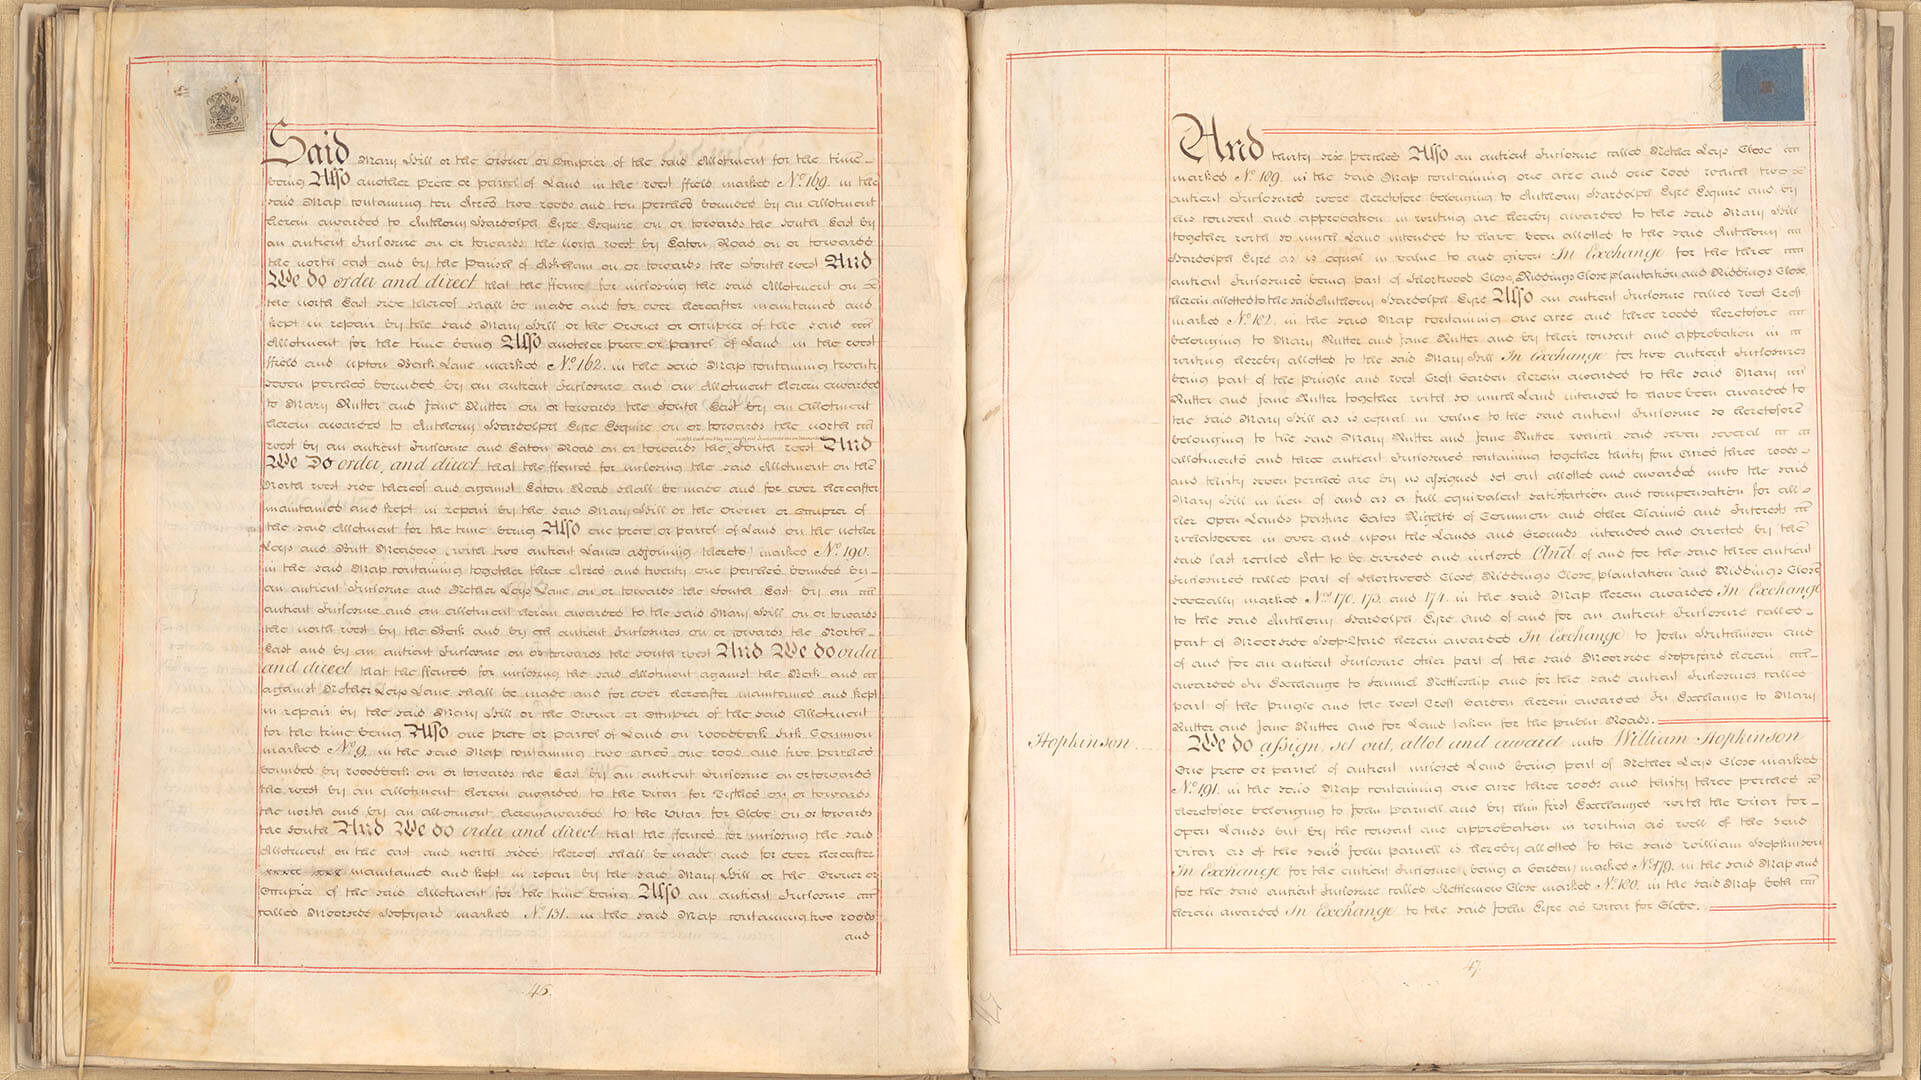 Said Mary Hill or the Owner or Occupier of the said Allotment for the time
being Also another piece or parcel of Land in the West ffield marked No. 169. in the
said Map containing ten Acres two roods and ten perches bounded by an allotment
herein awarded to Anthony Hardolph Eyre Esquire on or towards the South East by
an antient Inclosure on or towards the North West by Eaton Road on or towards
the north east and by the Parish of Askham on or towards the South West And
We do order and direct that the ffence for inclosing the said Allotment on
the North East side thereof shall be made and for ever hereafter maintained and
kept in repair by the said Mary Hill or the Owner or Occupier of the said
Allotment for the time being Also another piece or parcel of Land in the West
ffield and Upton Beck Lane marked No. 162. in the said Map containing twenty
seven perches bounded by an antient Inclosure and an Allotment herein awarded
to Mary Rutter and Jane Rutter on or towards the South East by an Allotment
herein awarded to Anthony Hardolph Eyre Esquire on or towards the North
West by an antient Inclosure and Eaton Road on or towards the South West And
We Do order, and direct that the ffences for inclosing the said Allotment on the
North West side thereof and against Eaton Road shall be made and for ever hereafter
maintained and kept in repair by the said Mary Hill or the Owner or Occupier of
the said Allotment for the time being Also one piece or parcel of Land on the nether
Leys and Butt Meadow (with two antient Lanes adjoining thereto) marked No. 190.
in the said Map containing together three Acres and twenty one perches bounded by
an antient Inclosure and Nether Leys Lane on or towards the South East by an
antient Inclosure and an allotment herein awarded to the said Mary Hill on or towards
the north West by the Beck and by antient Inclosures on or towards the North
East and by an antient Inclosure on or towards the South West And We do order
and direct that the ffences for inclosing the said Allotment against the Beck and
against Nether Leys Lane shall be made and for ever hereafter maintained and kept
in repair by the said Mary Hill or the Owner or Occupier of the said Allotment
for the time being Also one piece or parcel of Land on Woodbeck Sick Common
marked No. 9. in the said Map containing two acres one rood and five perches
bounded by Woodbeck on or towards the East by an antient Inclosure on or towards
the West by an allotment herein awarded to the Vicar for Tythes on or towards
the north and by an allotment herein awarded to the Vicar for Glebe on or towards
the South And We do order and direct that the ffences for inclosing the said
Allotment on the east and north sides thereof shall be made and for ever hereafter
maintained and kept in repair by the said Mary Hill or the Owner or
Occupier of the said Allotment for the time being Also an antient Inclosure
called Moorside Hopyard marked No. 131. in the said Map containing two roods
and
46.
And thirty six perches Also an antient Inclosure called Nether Leys Close
marked No. 189. in the said Map containing one acre and one rood which two
antient Inclosures were heretofore belonging to Anthony Hardolph Eyre Esquire and by
his consent and approbation in writing are hereby awarded to the said Mary Hill
together with so much Land intended to have been allotted to the said Anthony
Hardolph Eyre as is equal in value to and given In Exchange for the three
antient Inclosures being part of Shortwood Close, Riddings Close plantation and Riddings Close
herein allotted to the said Anthony Hardolph Eyre Also an antient Inclosure called West Croft
marked No. 182. in the said Map containing one acre and three roods heretofore
belonging to Mary Rutter and Jane Rutter and by their consent and approbation in
writing hereby allotted to the said Mary Hill In Exchange for two antient Inclosures
being part of the Pringle and West Croft Garden herein awarded to the said Mary
Rutter and Jane Rutter together with so much Land intended to have been awarded to
the said Mary Hill as is equal in value to the said antient Inclosure so heretofore
belonging to the said Mary Rutter and Jane Rutter. which said seven several
allotments and three antient Inclosures containing together thirty four acres three roods
and thirty seven perches are by us assigned set out allotted and awarded unto the said
Mary Hill in lieu of and as a full equivalent satisfaction and compensation for all
her Open Lands Pasture Gates Rights of Common and other Claims and Interests
whatsoever in over and upon the Lands and Grounds intended and directed by the
said last recited Act to be divided and inclosed And of and for the said three antient
Inclosures called part of Shortwood Close, Riddings Close, plantation and Riddings Close
severally marked Nos. 170. 173. and 174. in the said Map herein awarded In Exchange
to the said Anthony Hardolph Eyre And of and for an antient Inclosure called
part of Moorside Hop-Yard herein awarded In Exchange to John Hutchinson and
of and for an antient Inclosure other part of the said Moorside Hopyard herein
awarded In Exchange to Samuel Nettleship and for the said antient Inclosures called
part of the Pringle and the West Croft Garden herein awarded In Exchange to Mary
Rutter and Jane Rutter and for Land taken for the public Roads.
Hopkinson
We do assign, set out, allot and award unto William Hopkinson
One piece or parcel of antient inclosed Land being part of Nether Leys Close marked
No. 191. in the said Map containing one acre three roods and thirty three perches
heretofore belonging to John Parnell and by him first Exchanged with the Vicar for
Open Lands but by the consent and approbation in writing as well of the said
Vicar as of the said John Parnell is hereby allotted to the said William Hopkinson
In Exchange for the antient Inclosure (being a Garden) marked No. 179. in the said Map and
for the said antient Inclosure called Nettlemow Close marked No. 180. in the said Map both
herein awarded In Exchange to the said John Eyre as Vicar for Glebe.
47.